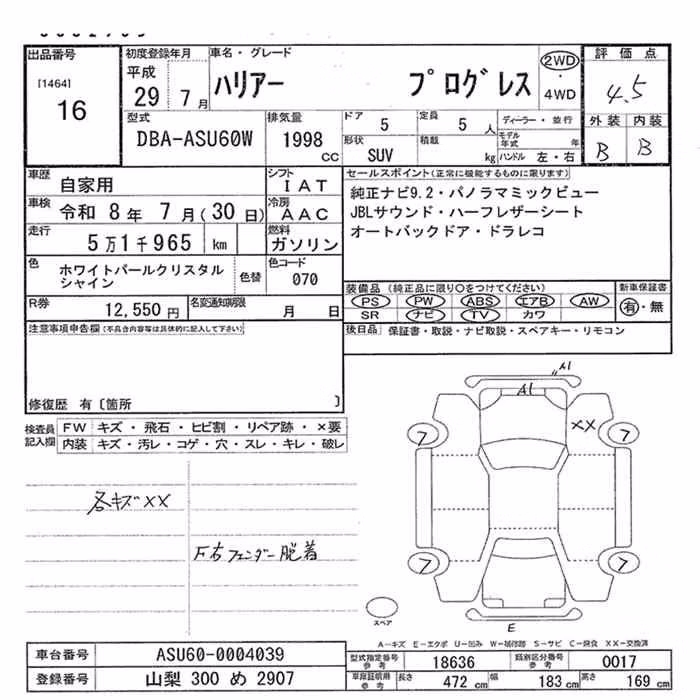 出品番号
[1464]
16
初度登録年月
平成
29 7月
車名・グレード
ハリアー プログレス
2WD
・
4WD
評価点
4.5
外装 内装
B B
型式
DBA-ASU60W
排気量
1998
cc
ドア
5
定員
5 人
形状
SUV
積載
kg
ディーラー・並行
モデル年式 年
ハンドル 左・右
車歴
自家用
シフト
IAT
車検
令和 8年 7月(30日)
冷房
AAC
走行
5万1千965 km
燃料
ガソリン
色
ホワイトパールクリスタル
シャイン
色替
色コード
070
R券
12,550円
名変通知期限
月 日
セールスポイント(正常に機能するものに限ります)
純正ナビ9.2・パノラマミックビュー
JBLサウンド・ハーフレザーシート
オートバックドア・ドラレコ
装備品(純正品に限り○をつけてください)
新車保証書
PS PW ABS エアB AW
SR ナビ TV カワ
有・無
後日品 保証書・取説・ナビ取説・スペアキー・リモコン
注意事項申告欄(不具合内容等は具体的に記入して下さい)
修復歴 有〔箇所 〕
検査員
記入欄
FW キズ・飛石・ヒビ割・リペア跡・×要
内装 キズ・汚レ・コゲ・穴・スレ・キレ・破レ
各キズXX
F右フェンダー脱着
A1
A1
XX
フ
フ
フ
フ
スペア
E
A-キズ E-エクボ U-凹み W-補修跡 S-サビ C-腐食 XX-交換済
車台番号 ASU60-0004039
登録番号 山梨 300 め 2907
型式指定番号
参考
18636
類別区分番号
参考
0017
車庫証明用
参考
長さ 472 cm
幅 183 cm
高さ 169 cm